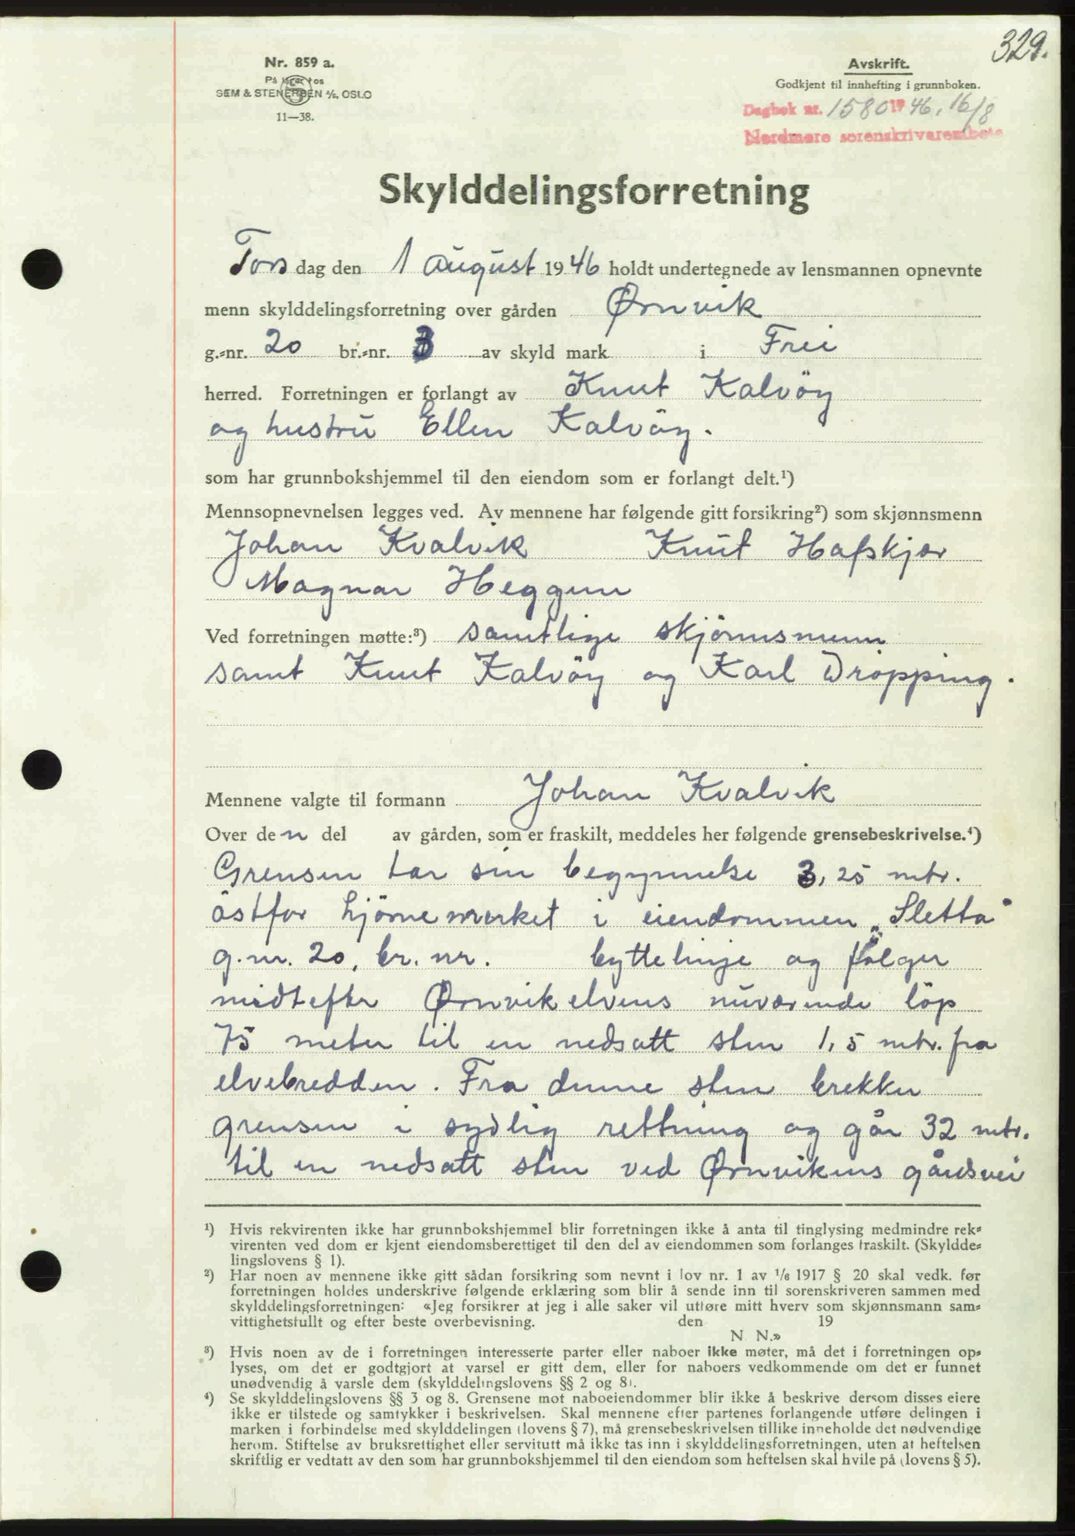 329.
Nr. 859 a.
SEM & STENERSEN A/S, OSLO
11—38.
Avskrift.
Godkjent til innhefting i grunnboken.
Dagbok nr. 1580 1946, 16/8
Nordmøre sorenskriverembete
Skylddelingsforretning
Tors dag den 1 august 1946 holdt undertegnede av lensmannen opnevnte
menn skylddelingsforretning over gården Ørnvik
g.-nr. 20 br.-nr. 3 av skyld mark i Frei
herred. Forretningen er forlangt av Knut Kalvöy
og hustru Ellen Kalvöy.
som har grunnbokshjemmel til den eiendom som er forlangt delt.¹)
Mennsopnevnelsen legges ved. Av mennene har følgende gitt forsikring²) som skjønnsmenn
Johan Kvalvik Knut Hafskjær
Magnar Heggem
Ved forretningen møtte:³) samtlige skjönnsmenn
samt Knut Kalvöy og Karl Dröpping.
Mennene valgte til formann Johan Kvalvik
Over den del av gården, som er fraskilt, meddeles her følgende grensebeskrivelse.⁴)
Grensen tar sin begynnelse 3,25 mtr.
östfor hjörnemerket i eiendommen „Sletta"
g.nr. 20, br. nr. byttelinje og fölger
midtefter Ørnvikelvens nuværende löp
75 meter til en nedsatt sten 1,5 mtr. fra
elvebredden. Fra denne sten brekker
grensen i sydlig rettning og går 32 mtr.
til en nedsatt sten ved Ørnvikens gårdsvei
¹) Hvis rekvirenten ikke har grunnbokshjemmel blir forretningen ikke å anta til tinglysing medmindre rek-
virenten ved dom er kjent eiendomsberettiget til den del av eiendommen som forlanges fraskilt. (Skyldde-
lingslovens § 1).
²) Har noen av mennene ikke gitt sådan forsikring som nevnt i lov nr. 1 av 1/6 1917 § 20 skal vedk. før
forretningen holdes underskrive følgende erklæring som blir å sende inn til sorenskriveren sammen med
skylddelingsforretningen: «Jeg forsikrer at jeg i alle saker vil utføre mitt hverv som skjønnsmann sam-
vittighetsfullt og efter beste overbevisning. den 19
N N.»
³) Hvis noen av de i forretningen interesserte parter eller naboer ikke møter, må det i forretningen op-
lyses, om det er godtgjort at varsel er gitt dem, eller for naboers vedkommende om det er funnet
unødvendig å varsle dem (skylddelingslovens §§ 2 og 8).
⁴) Se skylddelingslovens §§ 3 og 8. Grensene mot naboeiendommer blir ikke å beskrive dersom disses eiere
ikke er tilstede og samtykker i beskrivelsen. Skal mennene efter partenes forlangende utføre delingen i
marken i forbindelse med skylddelingen (lovens § 7), må grensebeskrivelsen tillike inneholde det nødvendige
herom. Stiftelse av bruksrettighet eller servitutt må ikke tas inn i skylddelingsforretningen, uten at heftelsen
skriftlig er vedtatt av den som har grunnbokshjemmel til den eiendom som heftelsen skal hvile på (lovens § 5).